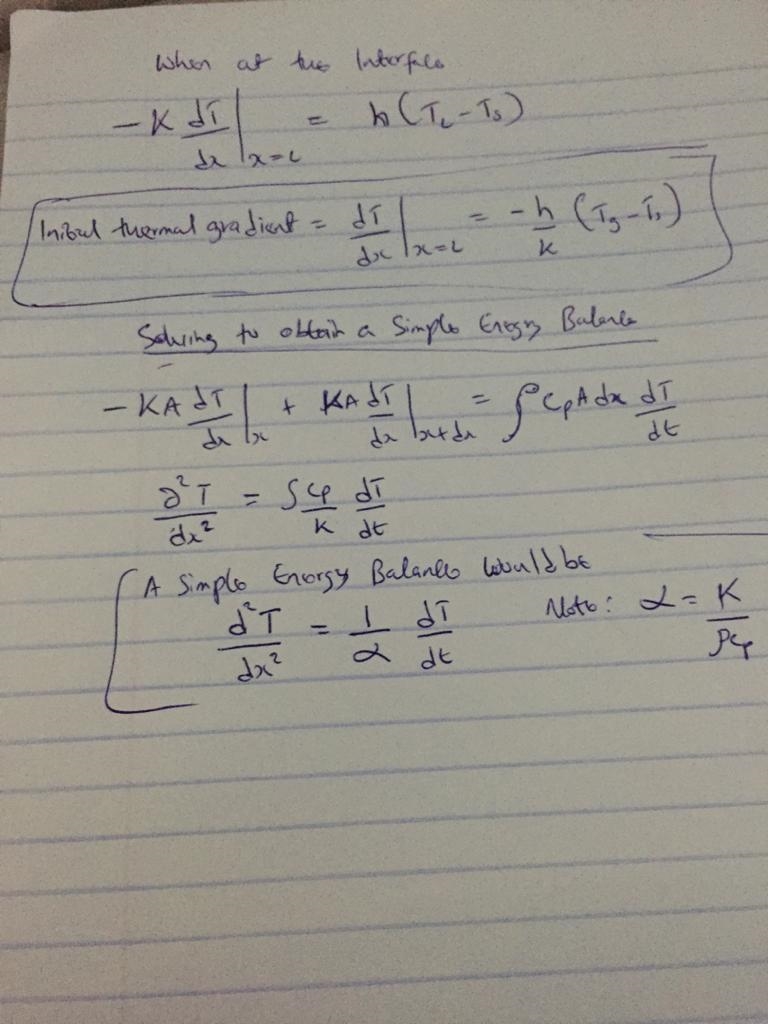 When at the Interface
-K dT/dx |x=L = h(TL - Ts)
Initial thermal gradient = dT/dx |x=L = -h/K (Ts - Ti)
Solving to obtain a Simple Energy Balance
-KA dT/dx |x + KA dT/dx |x+dx = ρ Cp A dx dT/dt
∂²T/dx² = ρCp/K dT/dt
A Simple Energy Balance would be
d²T/dx² = 1/α dT/dt Note: α = K/ρCp